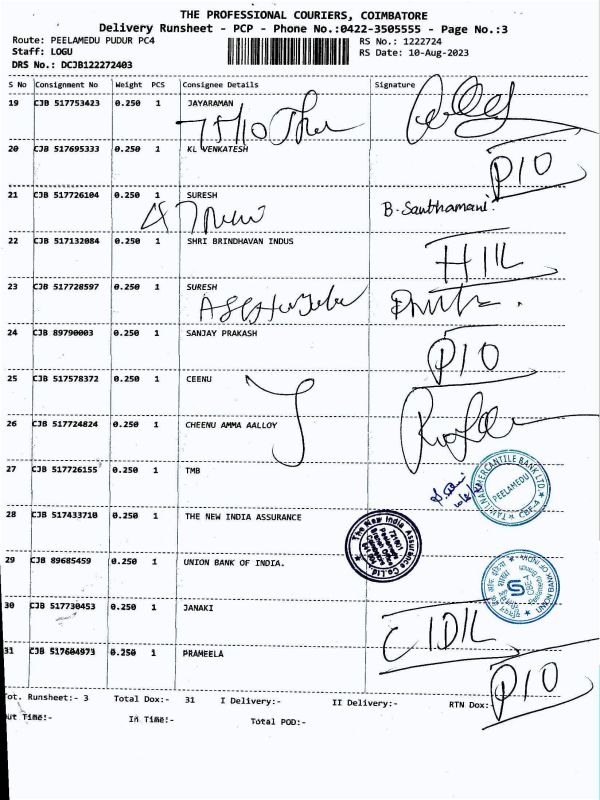 THE PROFESSIONAL COURIERS, COIMBATORE
Delivery Runsheet - PCP - Phone No.:0422-3505555 - Page No.:3
Route: PEELAMEDU PUDUR PC4 RS No.: 1222724
Staff: LOGU RS Date: 10-Aug-2023
DRS No.: DCJB122272403
S No Consignment No Weight PCS Consignee Details Signature
19 CJB 517753423 0.250 1 JAYARAMAN
20 CJB 517695333 0.250 1 KL VENKATESH
P10
21 CJB 517726104 0.250 1 SURESH
B. Santhamani.
22 CJB 517132084 0.250 1 SHRI BRINDHAVAN INDUS
23 CJB 517728597 0.250 1 SURESH
24 CJB 89790003 0.250 1 SANJAY PRAKASH
P10
25 CJB 517578372 0.250 1 CEENU
26 CJB 517724824 0.250 1 CHEENU AMMA AALLOY
27 CJB 517726155 0.250 1 TMB
TAMILNAD MERCANTILE BANK LTD.
PEELAMEDU
CBE-4
28 CJB 517433710 0.250 1 THE NEW INDIA ASSURANCE
The New India Assurance Co. Ltd.
721601
29 CJB 89685459 0.250 1 UNION BANK OF INDIA.
UNION BANK OF INDIA
30 CJB 517730453 0.250 1 JANAKI
31 CJB 517604973 0.250 1 PRAMEELA
P10
Tot. Runsheet:- 3 Total Dox:- 31 I Delivery:- II Delivery:- RTN Dox:-
ut Time:- In Time:- Total POD:-